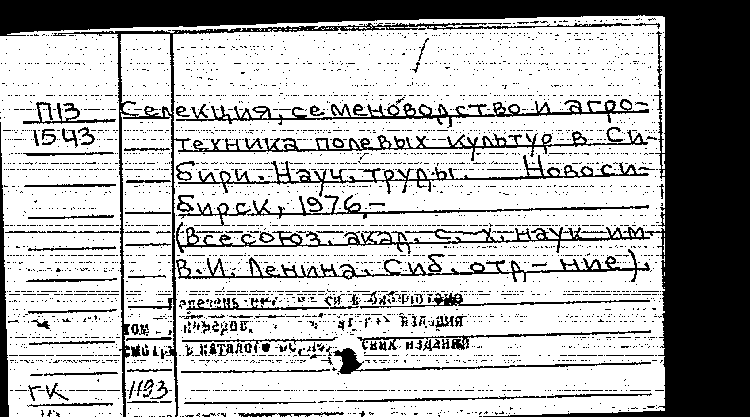 П13
1543
Селекция, семеноводство и агро=
техника полевых культур в Си-
бири. Науч. труды. Новоси=
бирск, 1976.-
(Всесоюз. акад. с.-х. наук им.
В.И. Ленина. Сиб. отд-ние).
Перечень в библиотеке
номеров, издания
смотри в каталоге издания
ГК 1193